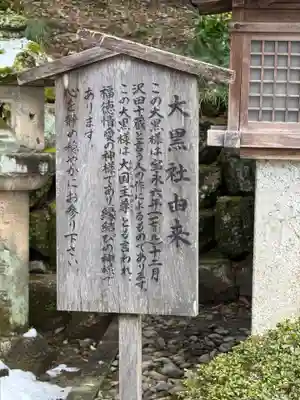 大黒社由来
この大黒様は宝永六年一百三十二月
沢田十蔵と言う人の作によるものであります
この大黒様は大国主尊とも言われ、
福徳情愛の神様であり縁結びの神様で
あります
心を静め穏やかにお参り下さい